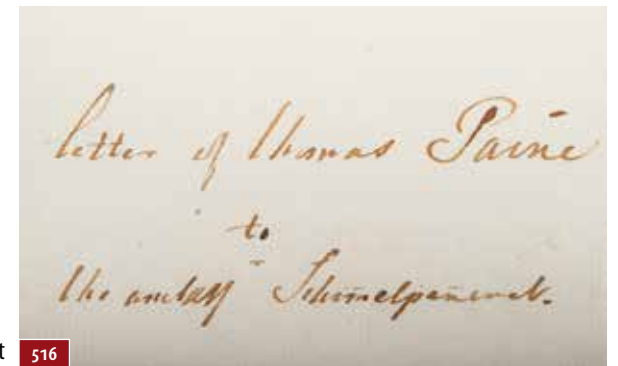 letter of thomas Paine
to
the ambass^r Schimelpeninck.
t 516